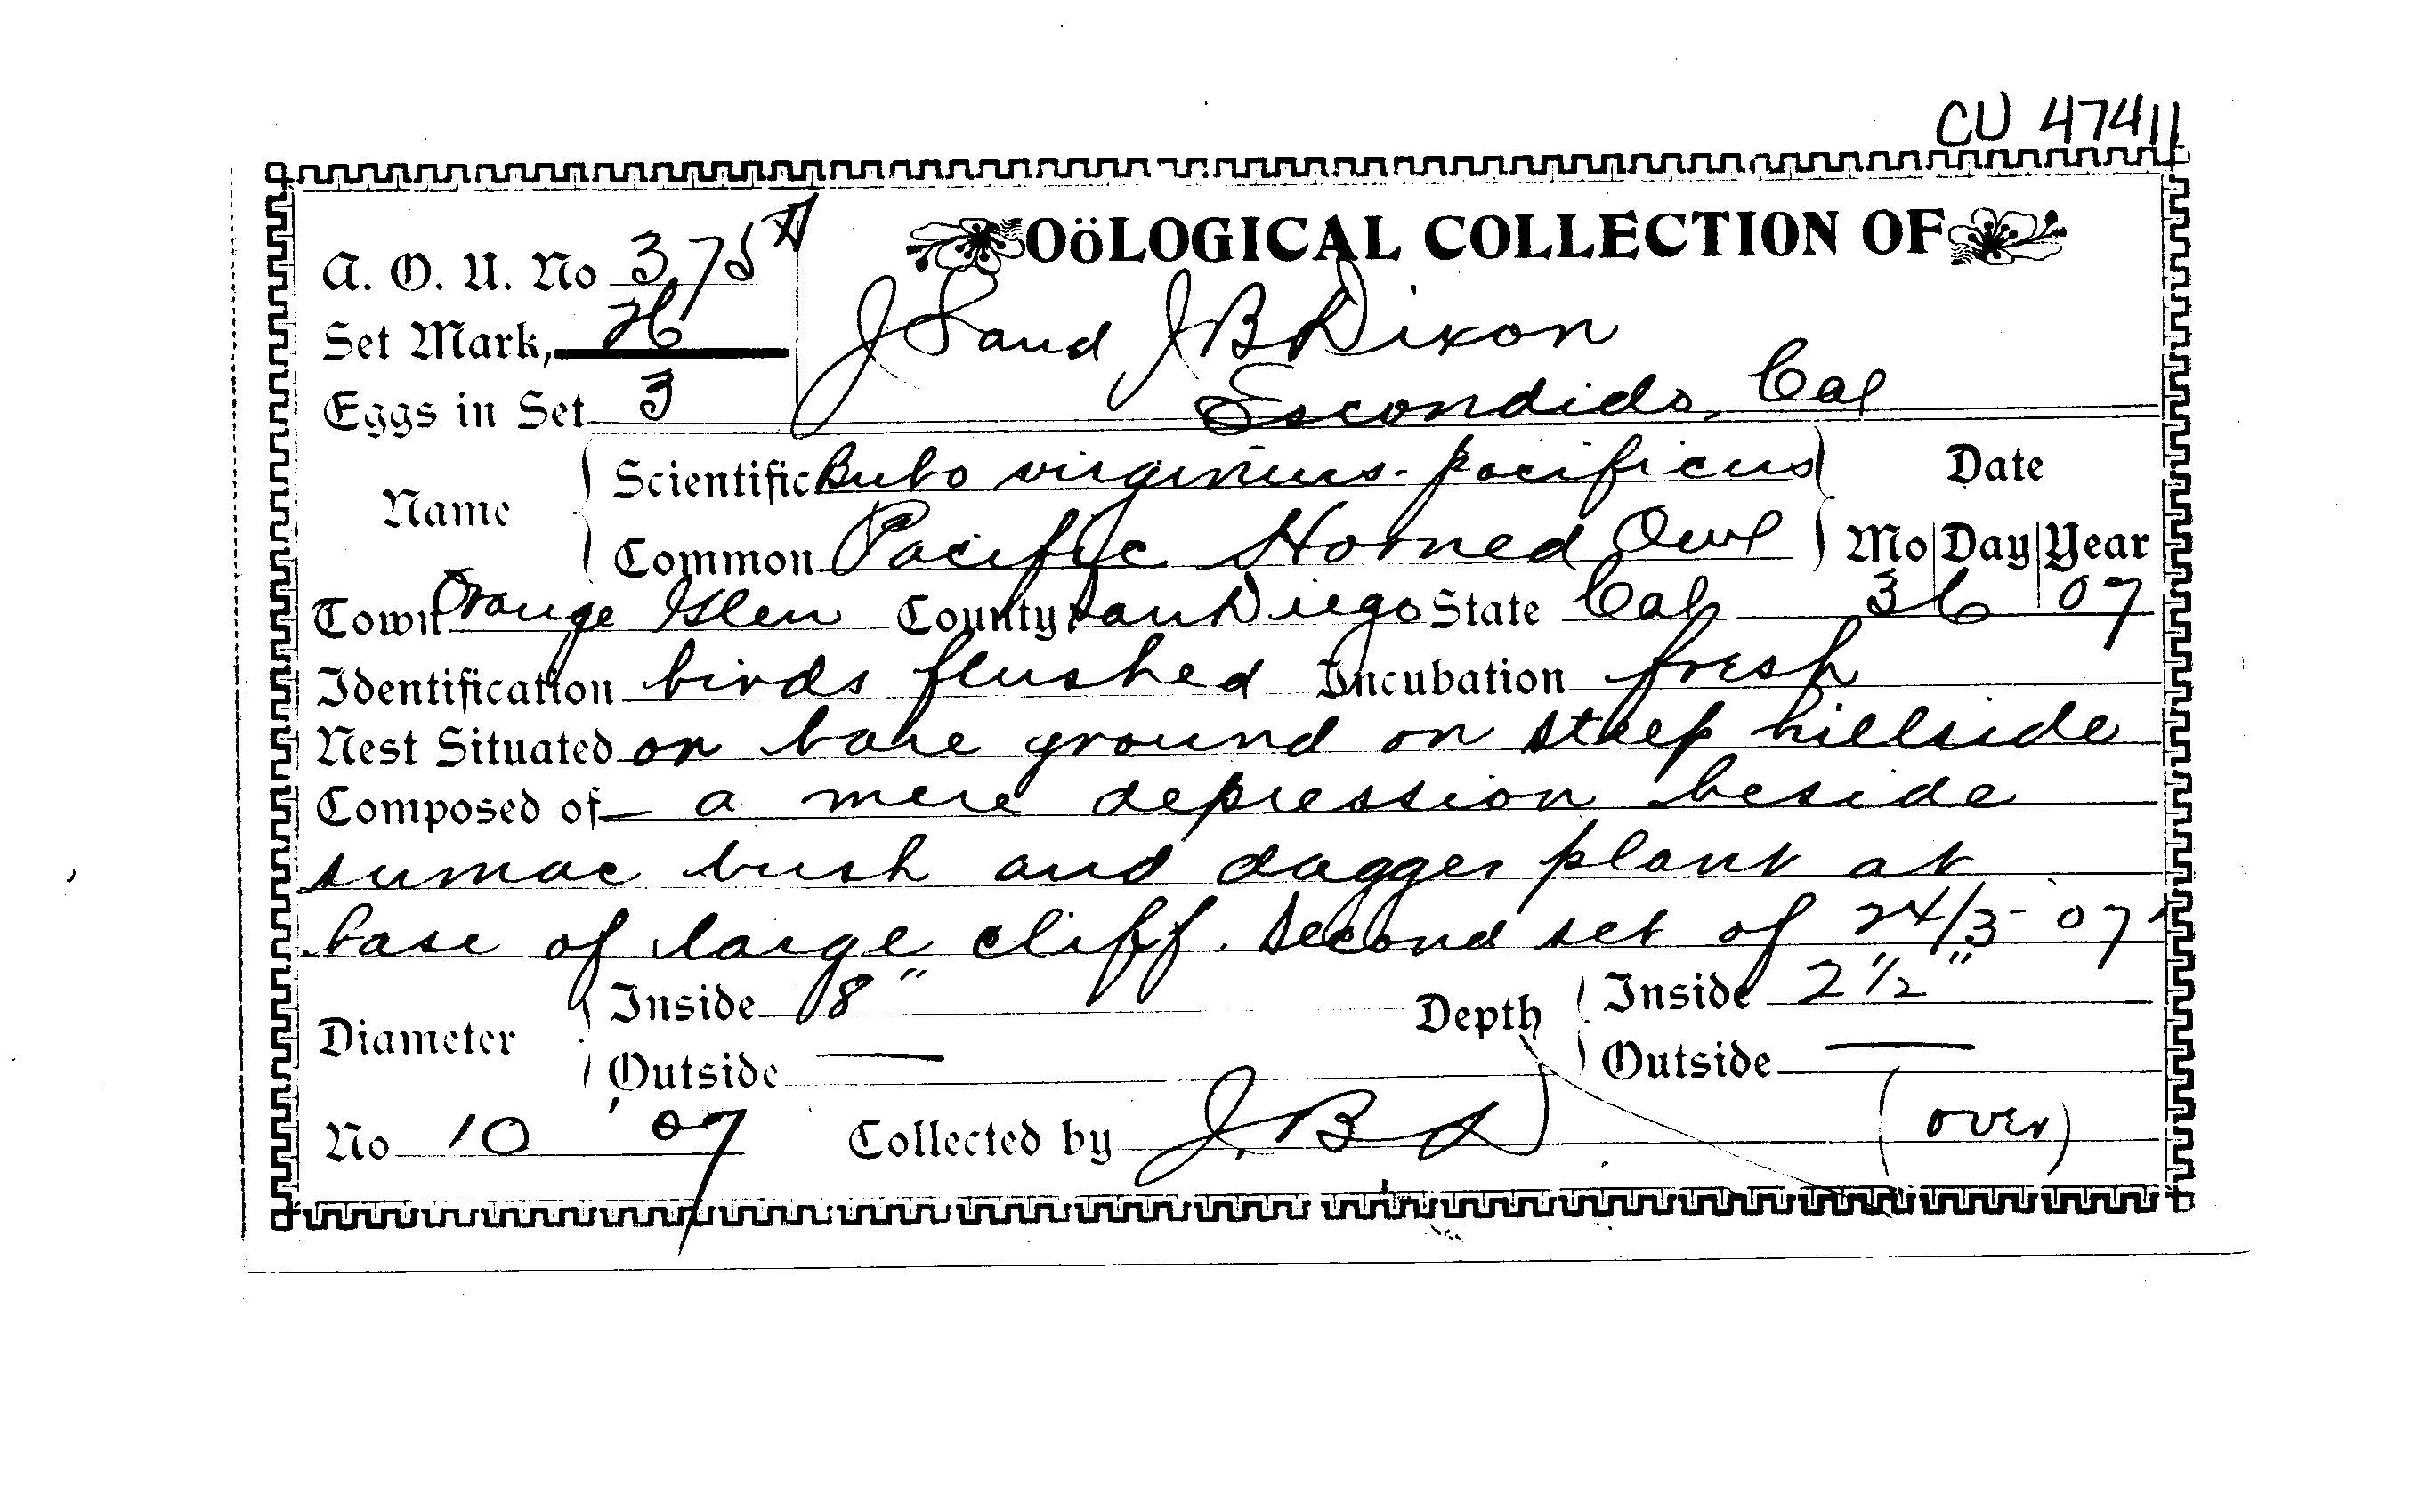 CU 47411
OöLOGICAL COLLECTION OF
A. O. U. No 375
Set Mark,
Eggs in Set 3
J S and J B Dixon
Escondido, Cal
Name
Scientific Bubo virginius - pacificus
Common Pacific Horned Owl
Date
Mo Day Year
Town Orange Glen County San Diego State Cal 3 6 07
Identification birds flushed Incubation fresh
Nest Situated on bare ground on steep hillside
Composed of — a mere depression beside
sumac bush and dagger plant at
base of large cliff. Second set of 24/3 - 07
Diameter
Inside 8"
Outside —
Depth
Inside 2 1/2"
Outside —
No 10 '07 Collected by J. B D (over)